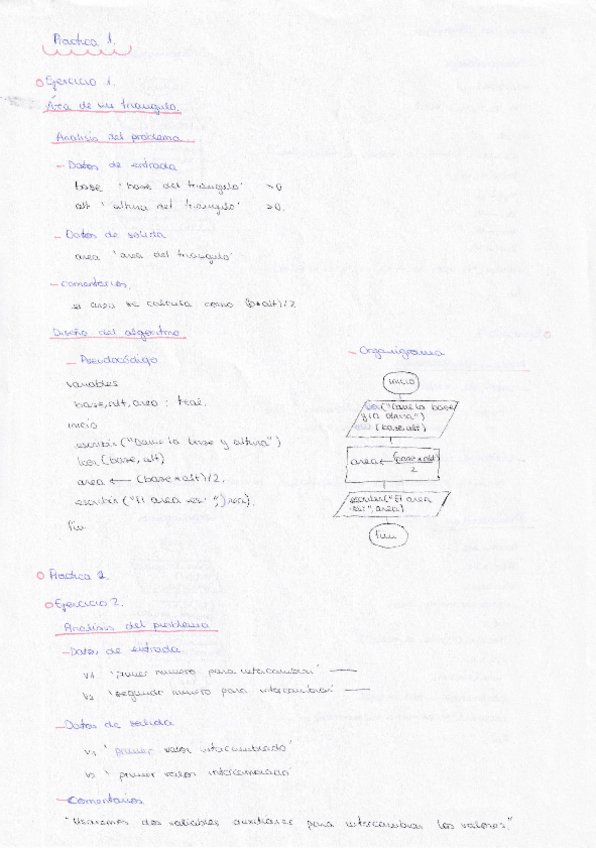 Practica 1.
Ejercicio 1.
Área de un triangulo.
Analisis del problema
- Datos de entrada
base 'base del triangulo' >0
alt 'altura del triangulo' >0.
- Datos de salida
area 'area del triangulo'
- comentarios.
el area se calcula como (b*alt)/2
Diseño del algoritmo
- Pseudocódigo
variables
base, alt, area : real.
inicio
escribir ("Dame la base y altura")
leer (base, alt)
area ← (base*alt)/2.
escribir ("El area es: ", area).
fin
- Organigrama
inicio
("Dame la base
y la altura")
(base, alt)
area ← (base*alt)
2
escribir ("El area
es: ", area)
fin
Practica 2.
Ejercicio 2.
Analisis del problema
- Datos de entrada
v1 'primer numero para intercambiar' —
v2 'segundo numero para intercambiar' —
- Datos de salida
v1 'primer valor intercambiado'
v2 ' primer valor intercambiado'
- Comentarios
"Usaremos dos variables auxiliares para intercambiar los valores."